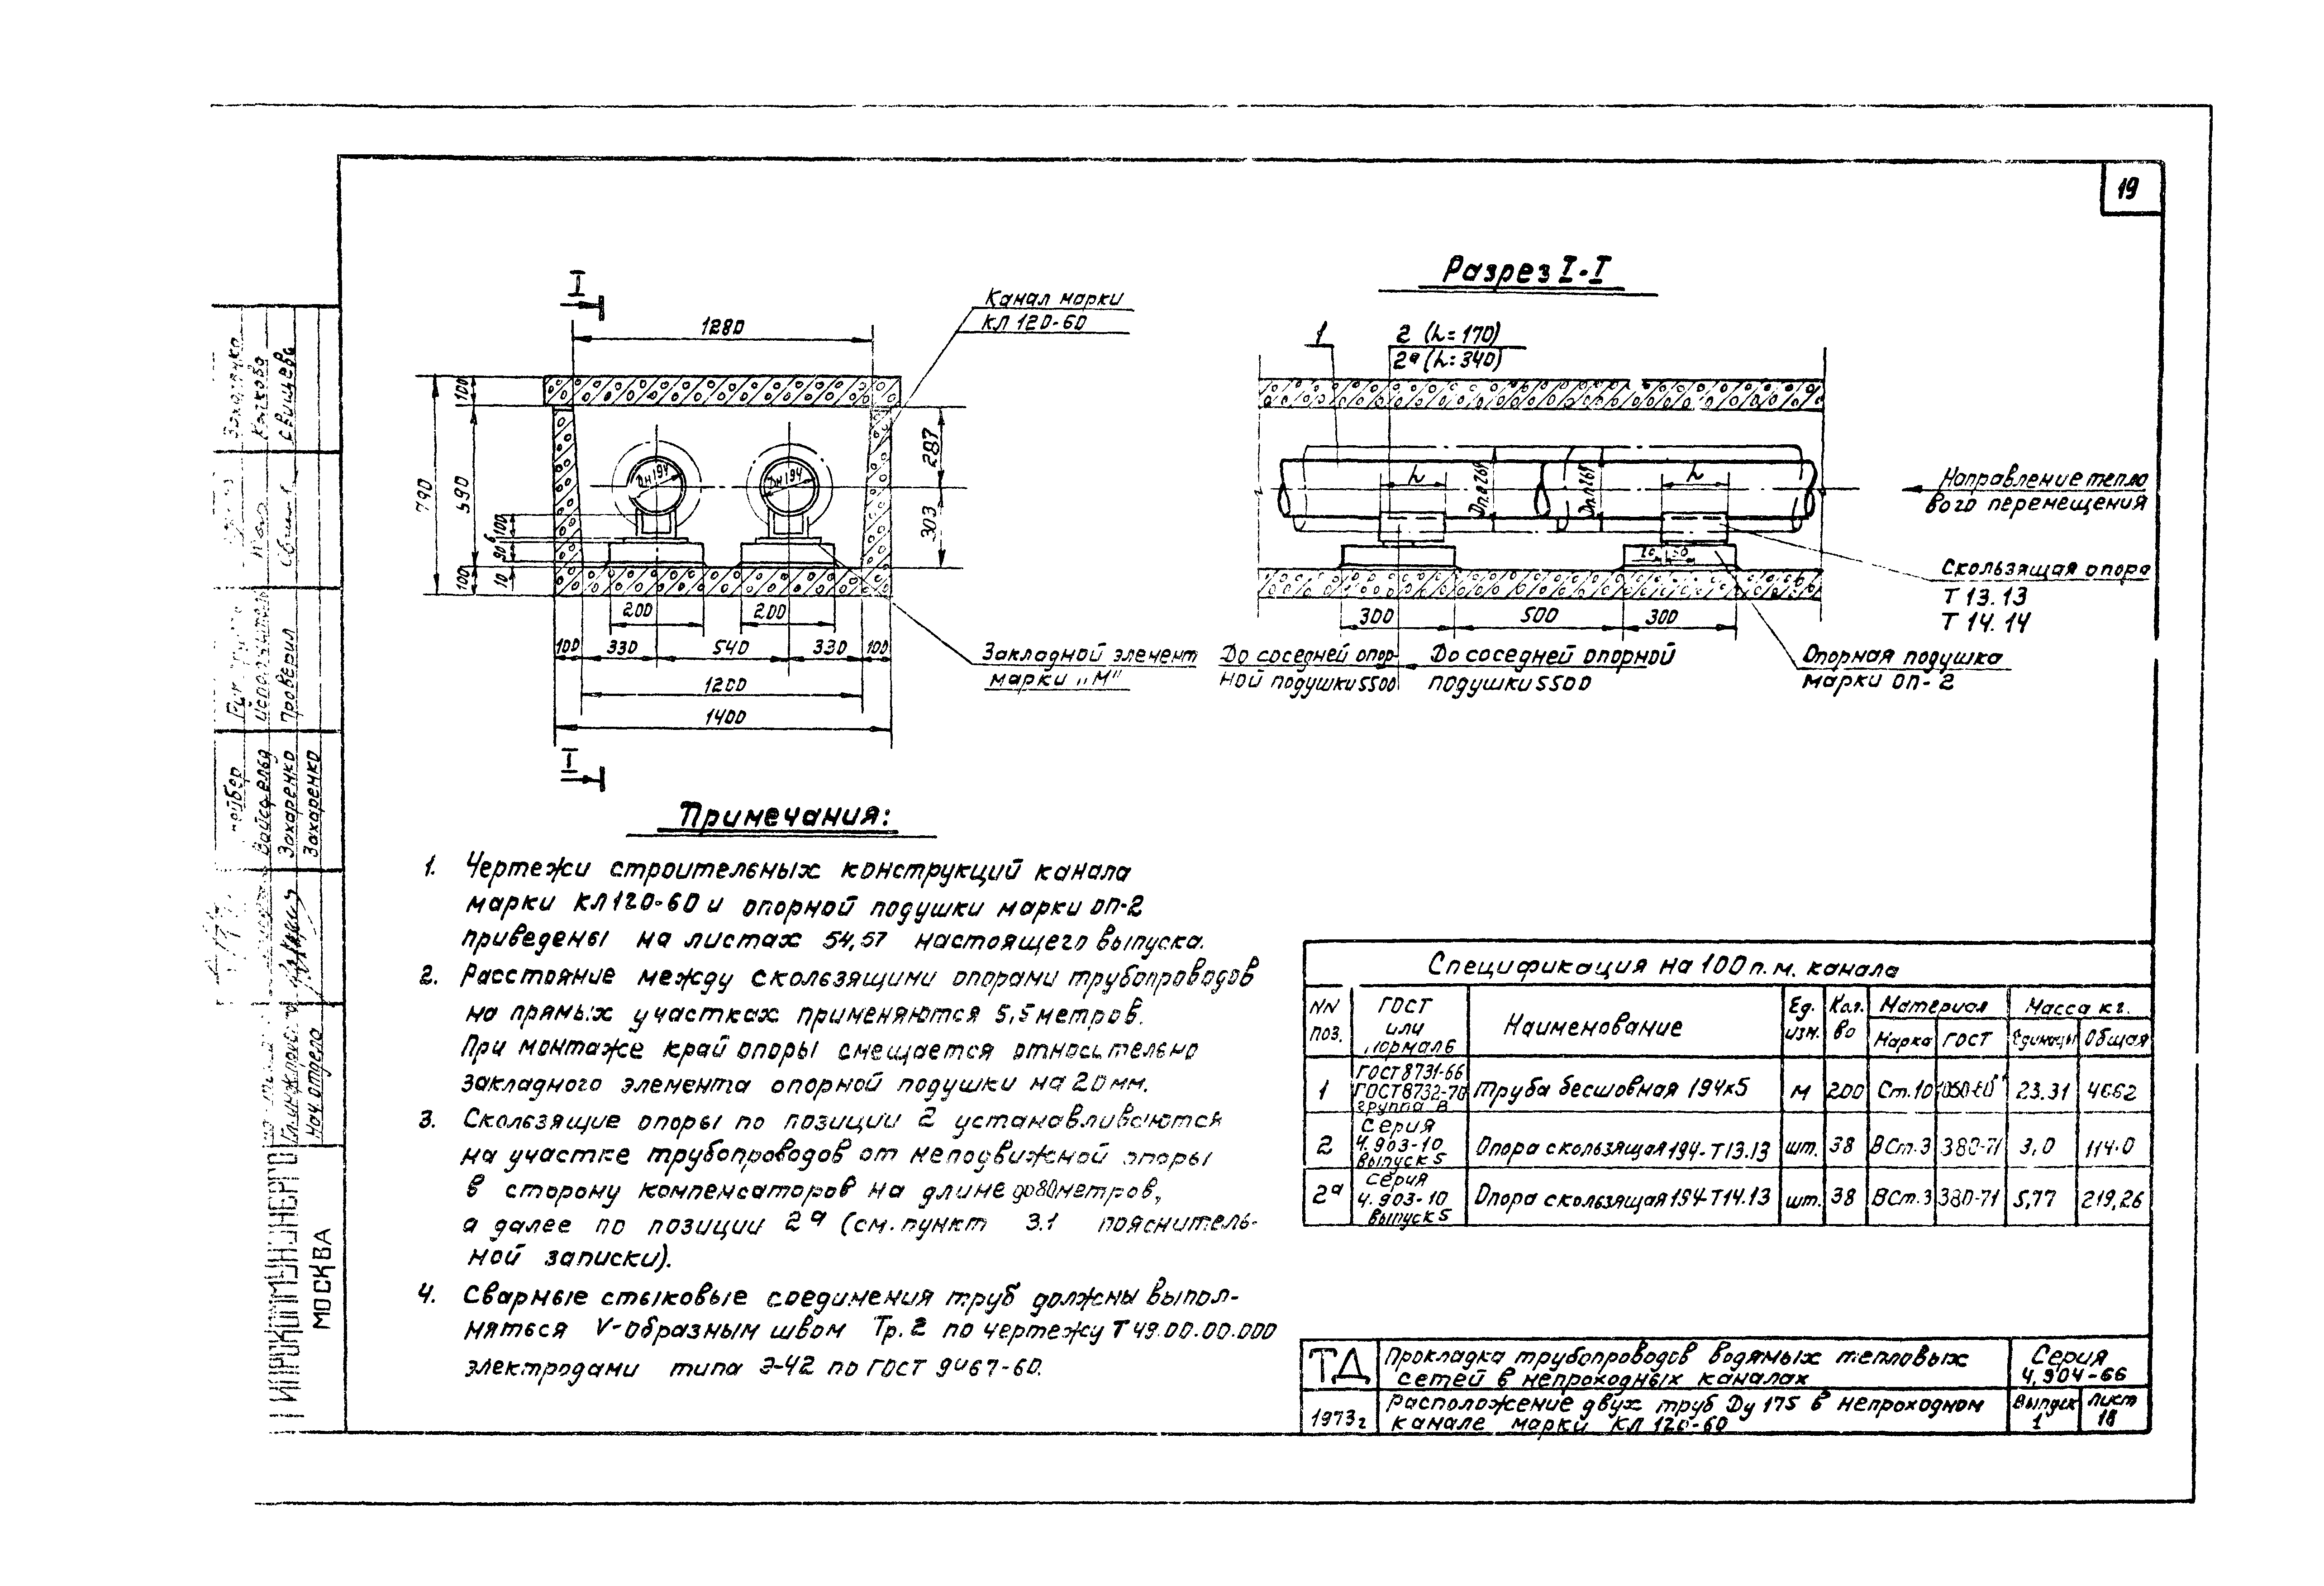 19
Разрез I-I
I
1280
Канал марки
КЛ 120-60
1
2 (L=170)
2ª (L=340)
790
100
590
100
100
6
90
10
Дн 194
Дн 194
287
303
L
L
Направление тепло
вого перемещения
Скользящая опора
Т 13.13
Т 14.14
200
200
300
500
300
100
330
540
330
100
1200
1400
Закладной элемент
марки „М"
До соседней опор-
ной подушки 5500
До соседней опорной
подушки 5500
Опорная подушка
марки ОП-2
I
Примечания:
1. Чертежи строительных конструкций канала
марки КЛ120-60 и опорной подушки марки ОП-2
приведены на листах 54,57 настоящего выпуска.
2. Расстояние между скользящими опорами трубопроводов
на прямых участках применяются 5,5 метров.
При монтаже край опоры смещается относительно
закладного элемента опорной подушки на 20мм.
3. Скользящие опоры по позиции 2 устанавливаются
на участке трубопроводов от неподвижной опоры
в сторону компенсаторов на длине до 80 метров,
а далее по позиции 2ª (см. пункт 3.1 пояснитель-
ной записки).
4. Сварные стыковые соединения труб должны выпол-
няться V-образным швом Тр. 2 по чертежу Т 49.00.00.000
электродами типа Э-42 по ГОСТ 9467-60.
Спецификация на 100 п.м. канала
NN поз. ГОСТ или нормаль Наименование Ед. изм. Кол. во Материал Масса кг.
Марка ГОСТ Единицы Общая
1 ГОСТ 8731-66 ГОСТ 8732-70 группа В Труба бесшовная 194х5 м 200 Ст.10 1050-60 23.31 4662
2 Серия 4.903-10 выпуск 5 Опора скользящая 194-Т13.13 шт. 38 ВСт.3 380-71 3,0 114.0
2ª Серия 4.903-10 выпуск 5 Опора скользящая 194-Т14.13 шт. 38 ВСт.3 380-71 5,77 219,26
ТД
Прокладка трубопроводов водяных тепловых
сетей в непроходных каналах
Серия
4.904-66
1973г
Расположение двух труб Ду 175 в непроходном
канале марки КЛ 120-60
Выпуск
1
Лист
18
МОСКВА
Нач. отдела
Захаренко
Захаренко
Проверил